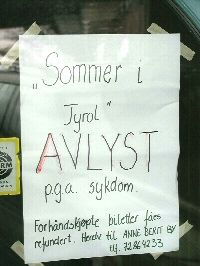 „Sommer i
Tyrol"
AVLYST
p.g.a. sykdom.
Forhåndskjøpte billetter fåes
refundert. til ANNE BERIT
tlf. 72464233